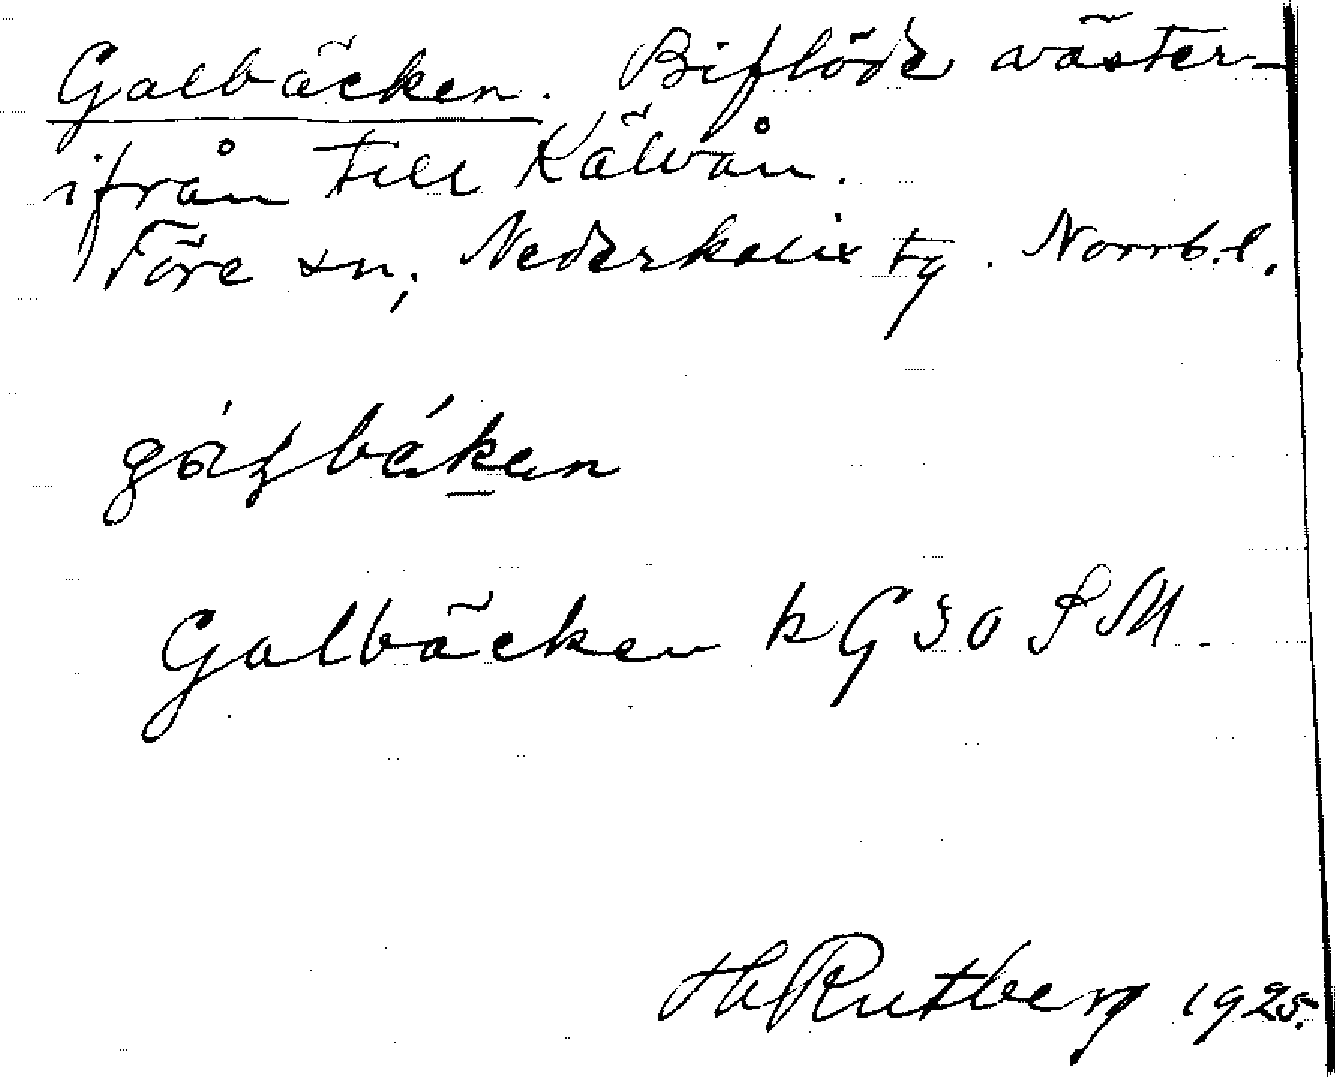 Galbäcken. Biflöde väster-
ifrån till Kälvån.
Töre sn; Nederkalix tg. Norrb.l.
Galbäcken kG 30 SM.
Rutberg 1925.